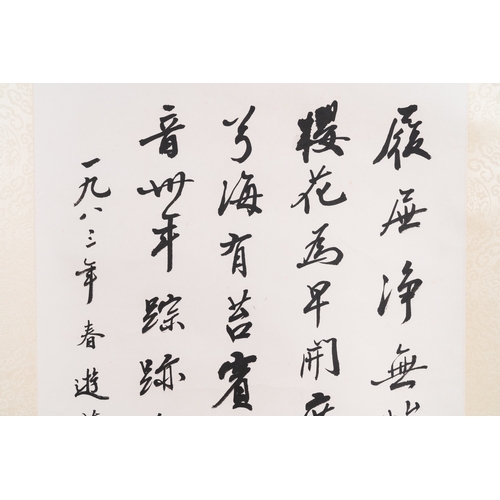 履净無
櫻花為早開
海有苔賓
音卅年踪跡
一九八三年春遊